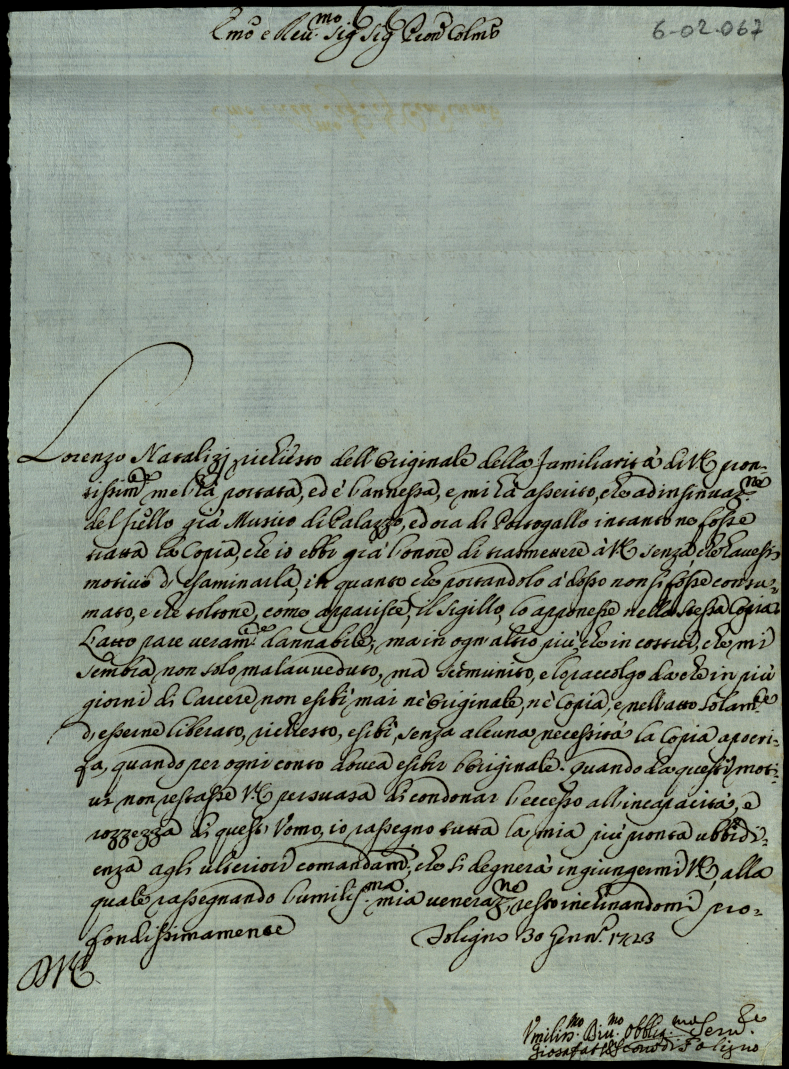 Emo e Reu.mo Sig.r Sig.r Pron Colmo
6-02-067
Lorenzo Natalizj richiesto dell'Originale della Familiarità di VE pron-
tissimte me l'hà portata, ed è l'annessa, e mi hà asserito, che ad insinuaz.ne
del già Musico di Palazzo, ed ora di Portogallo intanto ne fosse
tratta la Copia, che io ebbi già l'onore di trasmettere à VE senza che havessi
motivo di esaminarla, in quanto che portandolo à dosso non si fosse consu-
mato, e che toltone, come apparisce, il sigillo, lo apponesse nella stessa Copia
L'atto pare veramte dannabile, ma in ogn altro più, che in costui, che mi
sembra, non solo malaueduto, mà scimunito, e lo raccolgo da che in più
giorni di Carcere non esibì mai nè Originale, nè Copia, e nell'atto solamte
d'esserne liberato, richiesto, esibì, senza alcuna necessità la Copia apocri-
fa, quando per ogni conto dovea esibir l'Originale. quando da questi moti-
vi non restasse VE persuasa di condonar l'eccesso all'incapacità, e
rozzezza di quest'Vomo, io rassegno tutta la mia più pronta ubbidi-
enza agli ulteriori comandamti, che si degnerà ingiungermi VE, alla
quale rassegnando l'umiliss.ma mia veneraz.ne, resto inchinandomi pro-
fondissimamente Foligno 30 Genn.o 1723
DVE
Vmiliss.mo Diu.mo Obblig.mo Seru.re
Giosafat Vescouo di Foligno